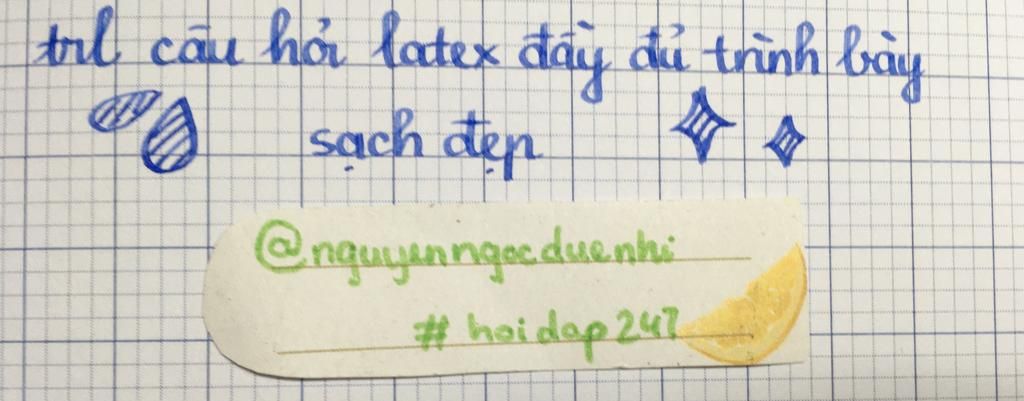 trl câu hỏi latex đầy đủ trình bày
sạch đẹp
@nguyenngocduenhi
# hoidap247